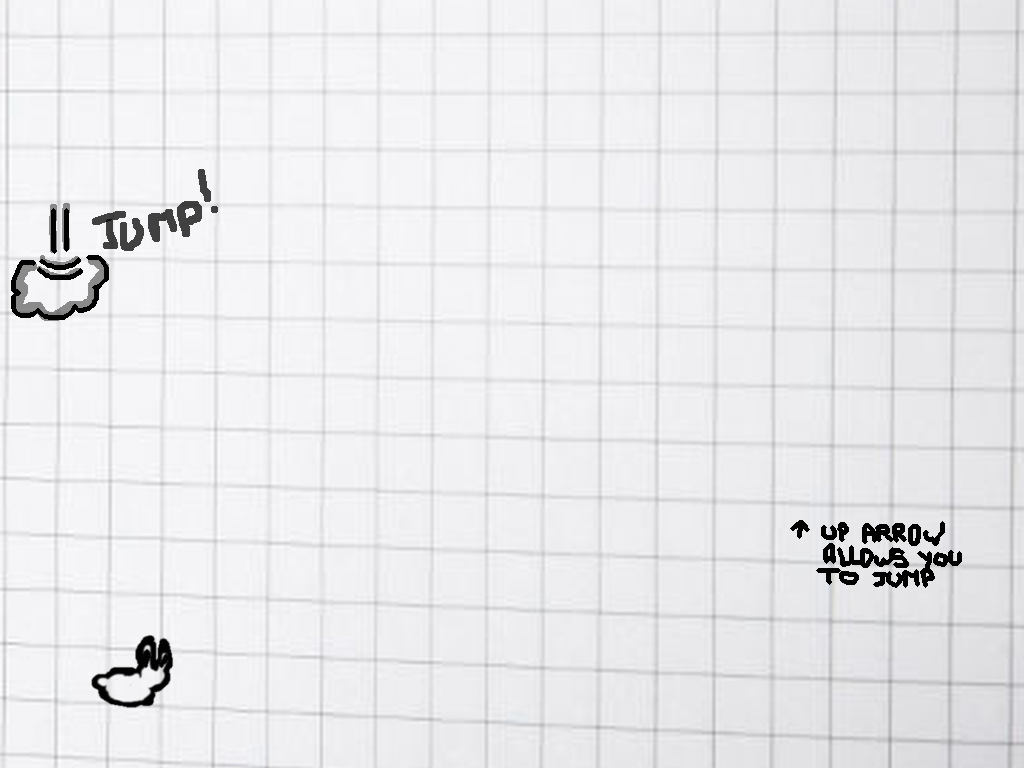 JUMP!
↑ UP ARROW
ALLOWS YOU
TO JUMP